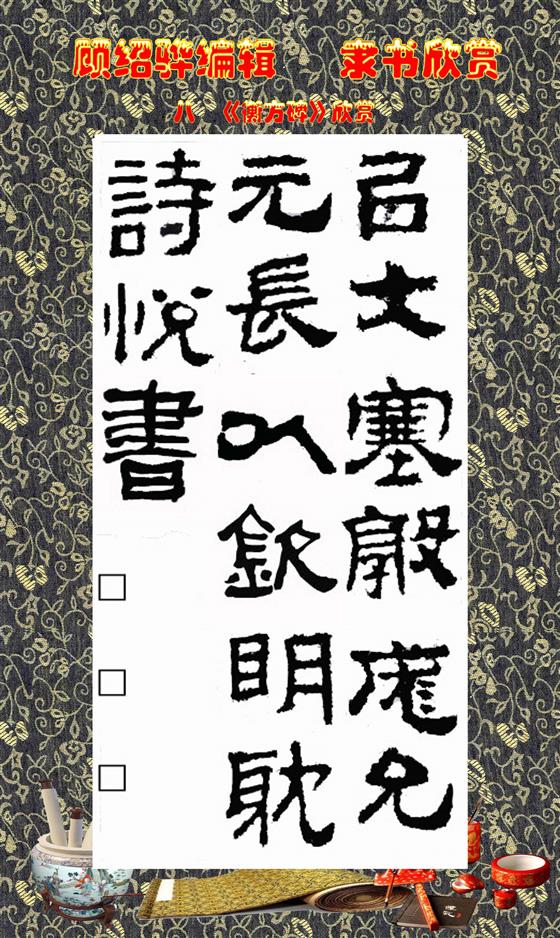 顾绍骅编辑 隶书欣赏
八 《衡方碑》欣赏
㠯文塞敦庬允
元長以欽明耽
詩悅書□□□